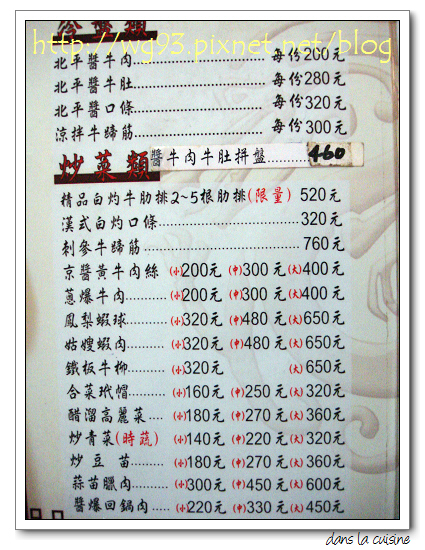 冷盤類
http://wg93.pixnet.net/blog
北平醬牛肉..................每份200元
北平醬牛肚..................每份280元
北平醬口條..................每份320元
涼拌牛蹄筋..................每份300元
炒菜類 醬牛肉牛肚拼盤..........460
精品白灼牛肋排2~5根肋排(限量) 520元
漢式白灼口條..................320元
刺參牛蹄筋..................760元
京醬黃牛肉絲 (小)200元 (中)300元 (大)400元
蔥爆牛肉.......... (小)200元 (中)300元 (大)400元
鳳梨蝦球.......... (小)320元 (中)480元 (大)650元
姑嫂蝦肉.......... (小)320元 (中)480元 (大)650元
鐵板牛柳.......... (小)320元 (大)650元
合菜玳帽.......... (小)160元 (中)250元 (大)320元
醋溜高麗菜.... (小)180元 (中)270元 (大)360元
炒青菜(時蔬) (小)140元 (中)220元 (大)320元
炒豆苗.......... (小)180元 (中)270元 (大)360元
蒜苗臘肉.......... (小)300元 (中)450元 (大)600元
醬爆回鍋肉.... (小)220元 (中)330元 (大)450元
dans la cuisine